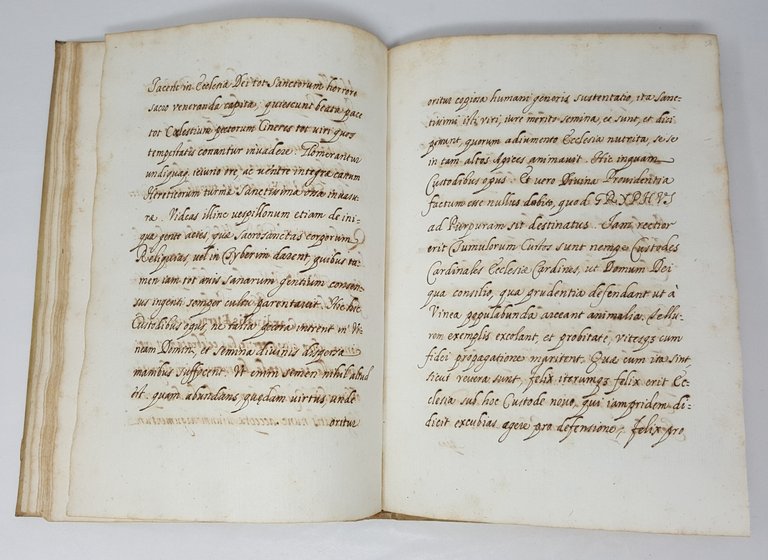 Jacent in Ecclesia Dei tot Sanctorum horrore
sacio veneranda capita, quiescunt beata pace
tot Coelestium pectorum Cineres tot viri quos
tempestates conantur invadere.
undiquaq ieiunio tre, ac ventre integra canum
Hereticorum turma Sanctissima ossa
Videas illinc vespillonum etiam de ini-
qua gente actes, quae Sacrosanctas corporum
Reliquias, vel in Tyberum darent, quibus ta-
men iam tot annis sanarum gentium consen-
sus ingenti semper cultu parentavit. Hic hic
Custodibus opus, ne talia pecora intrent in Vi-
neam Domini, et semina divinis dispersa
manibus suffocent. Ut enim semen nihil aliud
est, quam abundans quaedam virtus unde
oritur
oritur copiosa humani generis sustentatio, ita Sanc-
tissimi isti viri, iure merito semina, et sunt, et dici
possunt, quorum adiumento Ecclesia nutrita, se se
in tam altos Apices animavit. Hic inquam
Custodibus opus. Et vero Divina Providentia
factum esse nullus dubito, quod
ad Purpuram sit destinatus. Iam rectior
erit Tumulorum Custos sunt nempe Custodes
Cardinales Ecclesiae Cardines, ut Domum Dei
qua consilio, qua prudentia defendant ut à
Vinea populabunda arceant animalia.
rem exemplis excolant, et probitate, vitesq cum
fidei propagatione maritent. Quae cum ita sint,
sicut revera sunt, felix iterumq felix erit Ec-
clesia sub hoc Custode novo, qui iampridem di-
dicit excubias agere pro defensione, felix pro